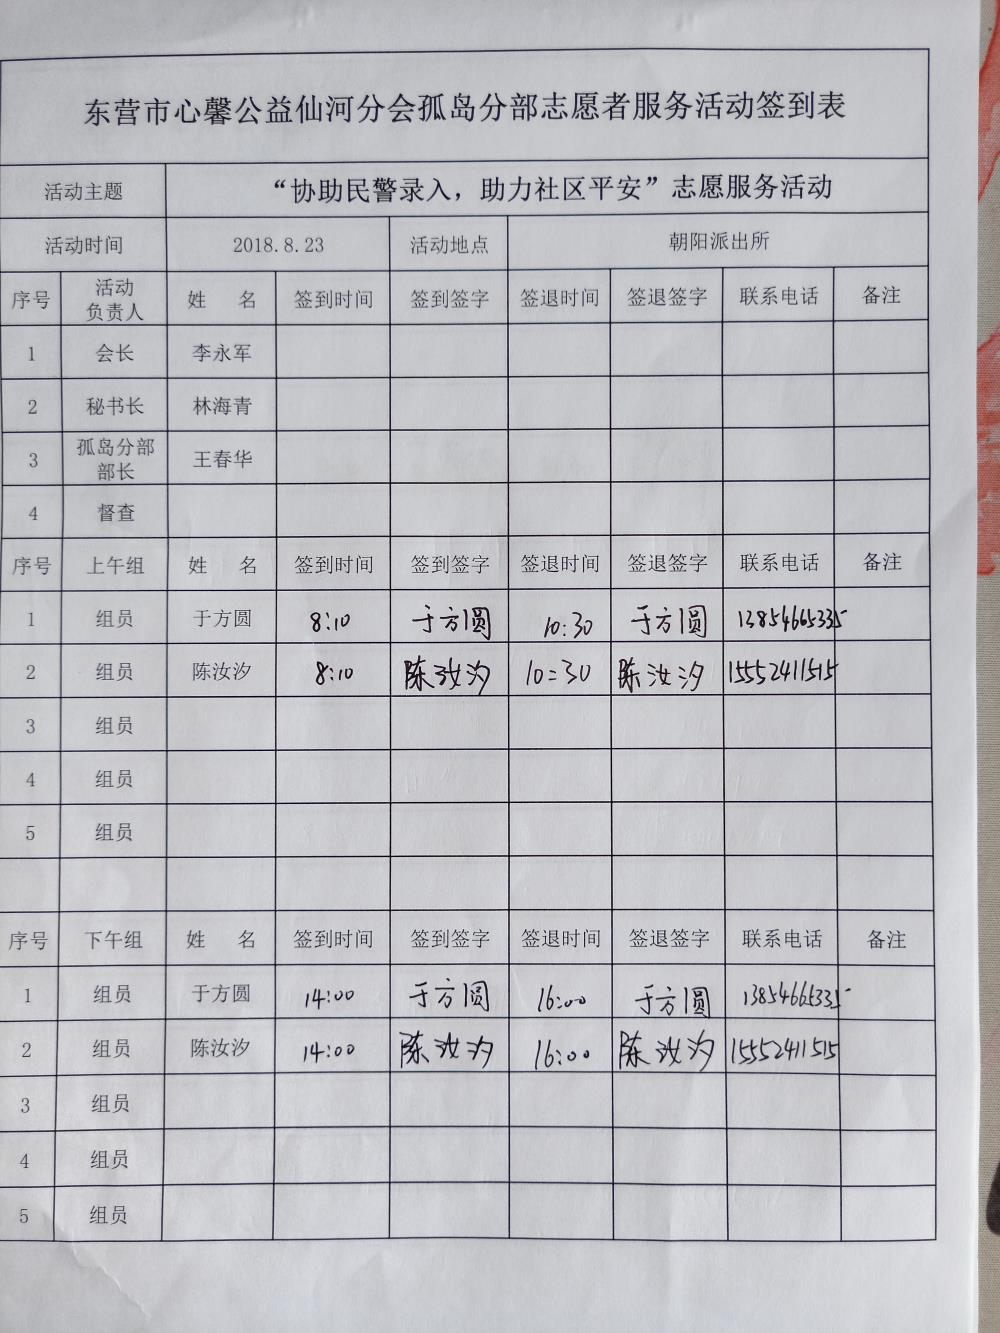 东营市心馨公益仙河分会孤岛分部志愿者服务活动签到表
活动主题 “协助民警录入，助力社区平安”志愿服务活动
活动时间 2018.8.23 活动地点 朝阳派出所
序号 活动负责人 姓 名 签到时间 签到签字 签退时间 签退签字 联系电话 备注
1 会长 李永军
2 秘书长 林海青
3 孤岛分部部长 王春华
4 督查
序号 上午组 姓 名 签到时间 签到签字 签退时间 签退签字 联系电话 备注
1 组员 于方圆 8:10 于方圆 10:30 于方圆 13854665335
2 组员 陈汝汐 8:10 陈汝汐 10:30 陈汝汐 15552411515
3 组员
4 组员
5 组员
序号 下午组 姓 名 签到时间 签到签字 签退时间 签退签字 联系电话 备注
1 组员 于方圆 14:00 于方圆 16:00 于方圆 13854665335
2 组员 陈汝汐 14:00 陈汝汐 16:00 陈汝汐 15552411515
3 组员
4 组员
5 组员